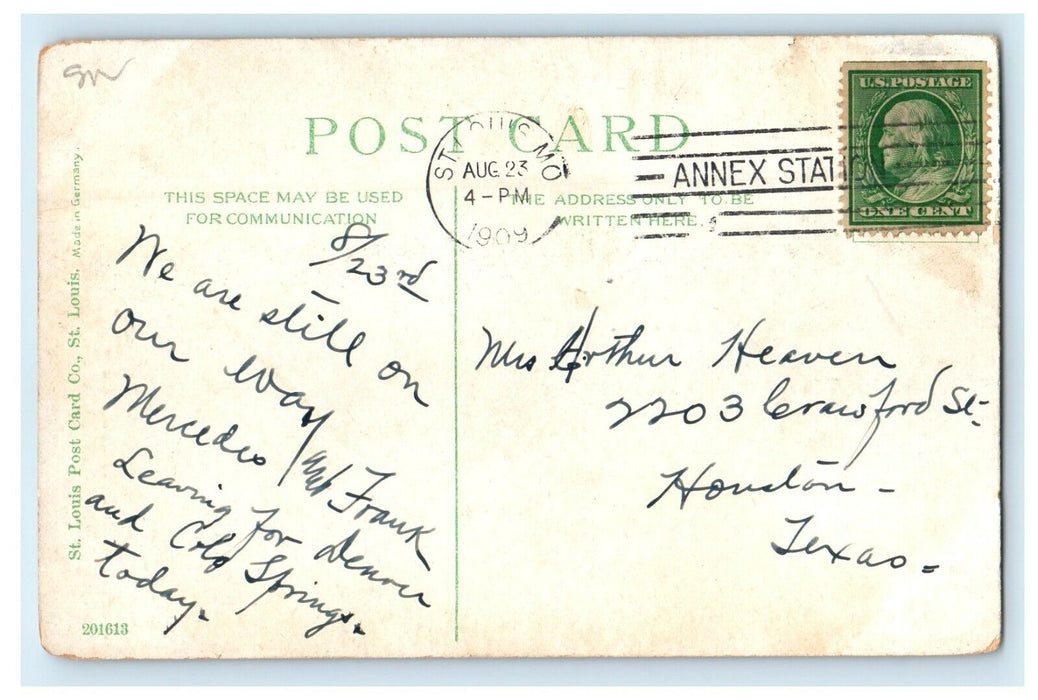 POST CARD
THIS SPACE MAY BE USED
FOR COMMUNICATION
THE ADDRESS ONLY TO BE
WRITTEN HERE.
ST LOUIS MO
AUG 23
4-PM
1909
ANNEX STATIO
U.S. POSTAGE
ONE CENT
8/23rd
We are still on
our way
Mercedes and Frank
Leaving for Denver
and Colo Springs.
today.
Mrs Arthur Heaven
2203 Crawford St.
Houston -
Texas =
St. Louis Post Card Co., St. Louis. Made in Germany.
201613